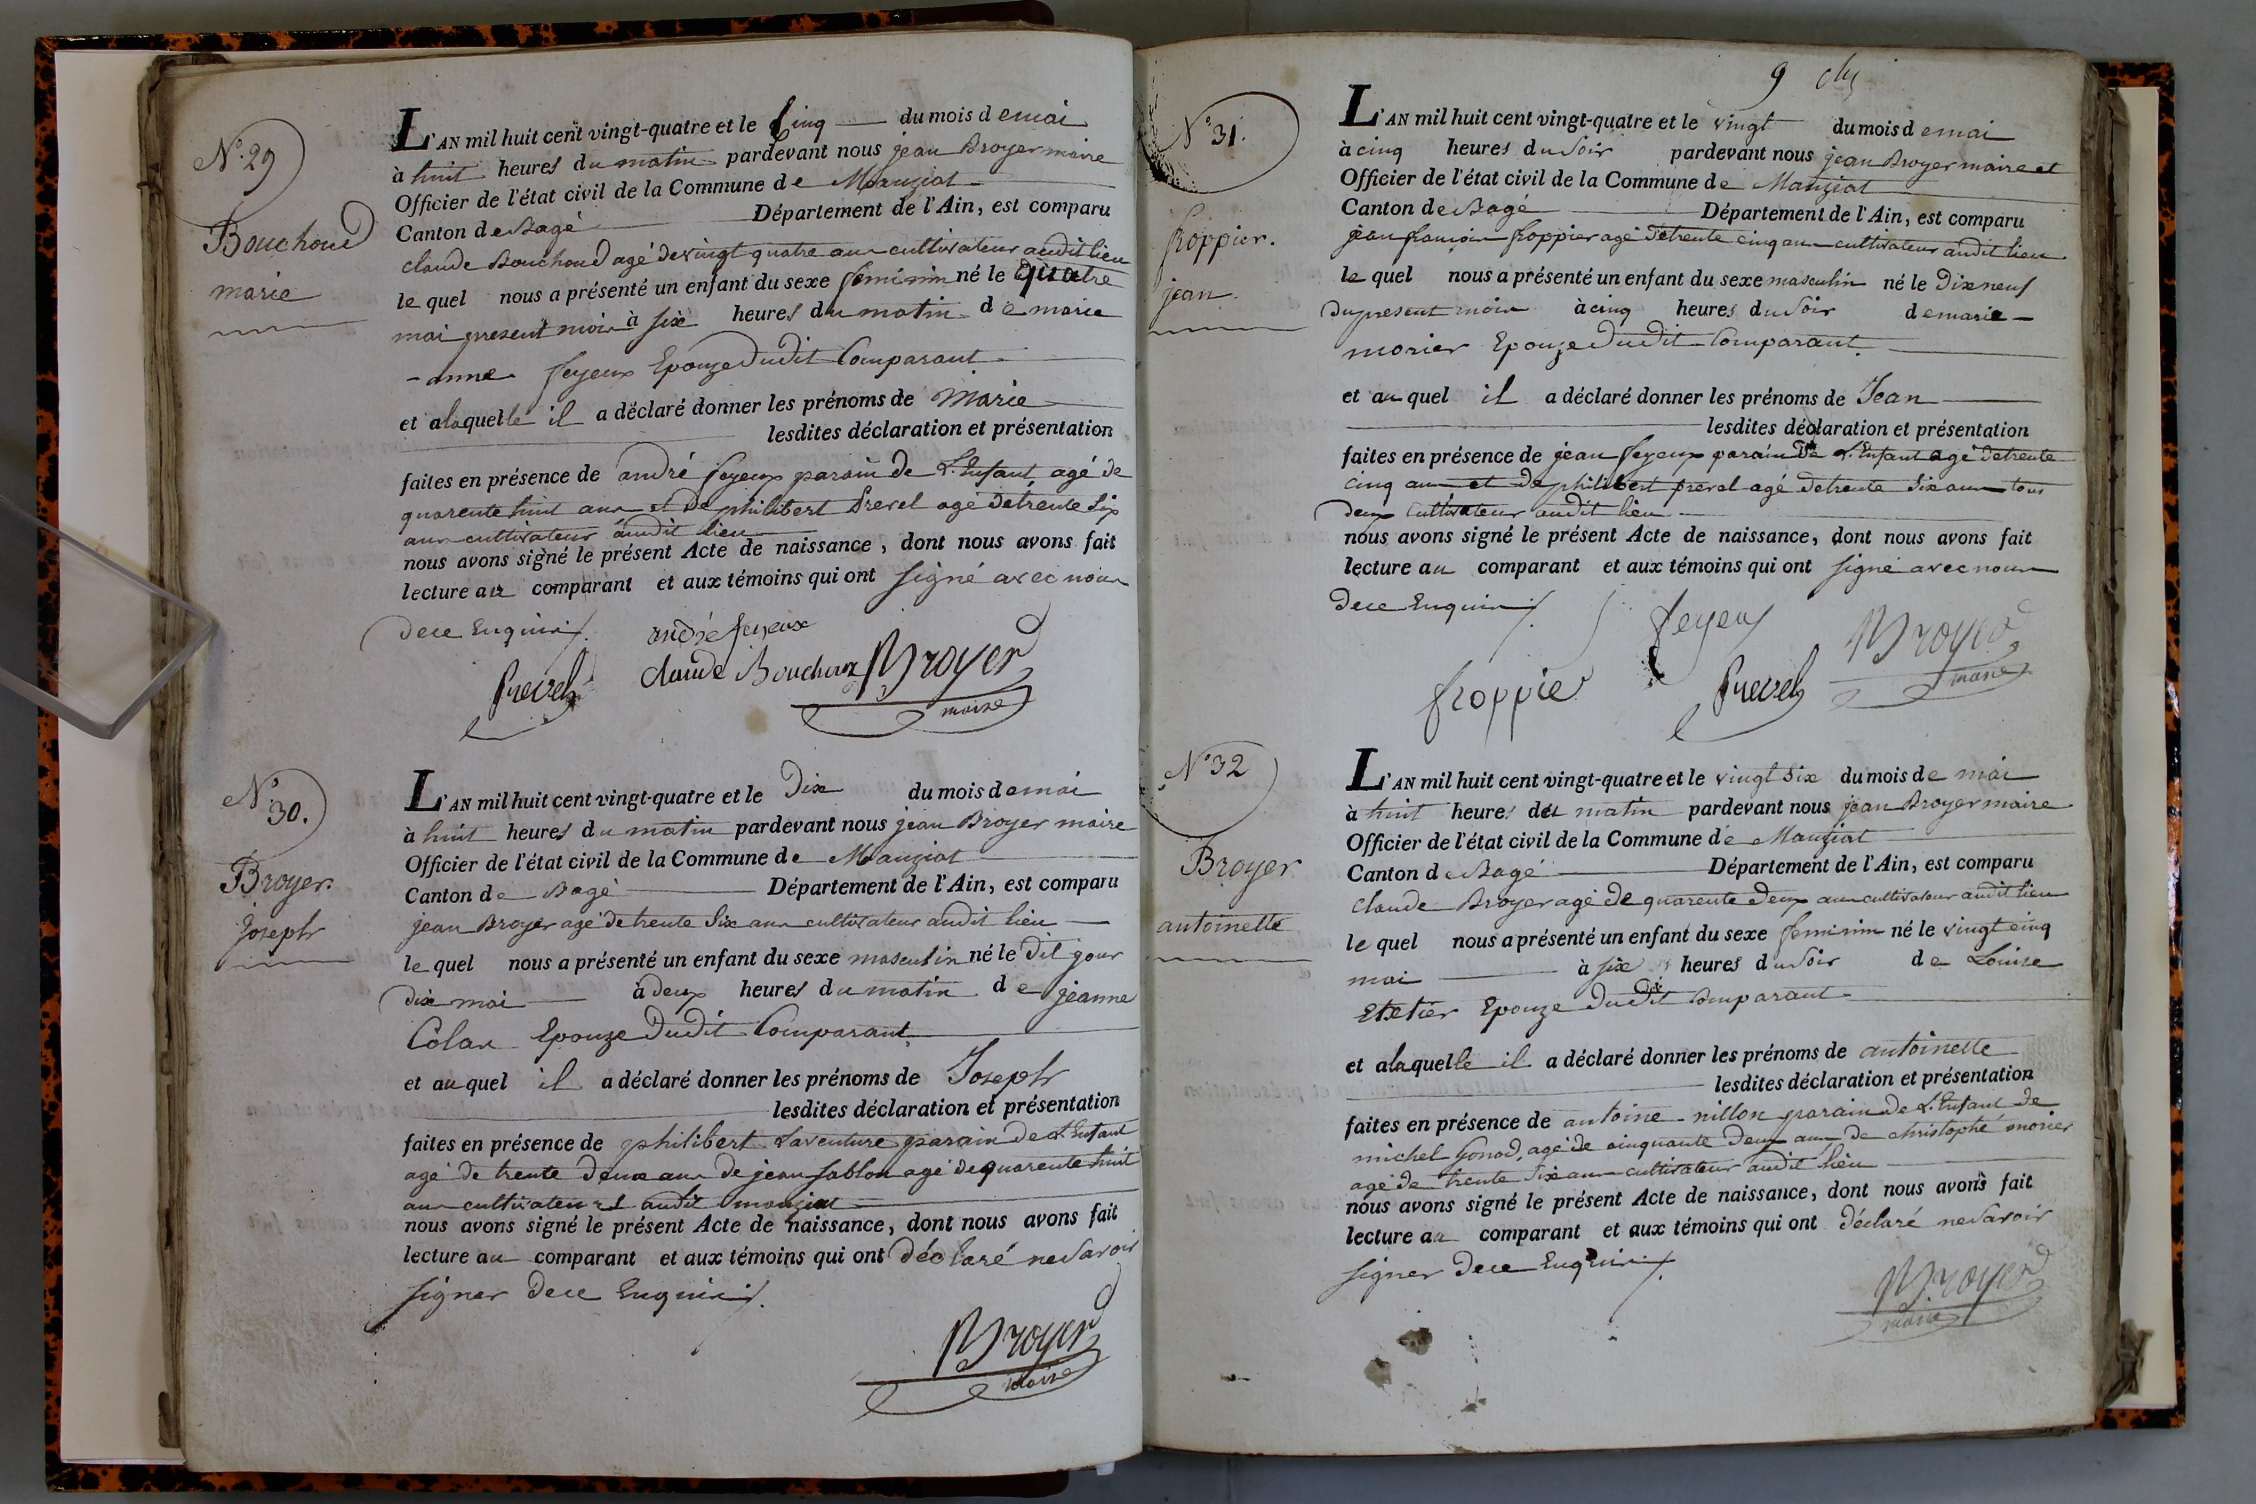 N° 29
Bouchoud
marie
L'AN mil huit cent vingt-quatre et le Cinq du mois d e mai
à huit heures du matin pardevant nous jean Broyer maire
Officier de l'état civil de la Commune de Manziat
Canton de Bagé Département de l'Ain, est comparu
claude Bouchoud agé de vingt quatre ans cultivateur audit lieu
le quel nous a présenté un enfant du sexe feminin né le quatre
mai present mois à six heures du matin de marie
-anne feyeux Epouze Dudit Comparant
et a laquelle il a déclaré donner les prénoms de Marie
lesdites déclaration et présentation
faites en présence de andré feyeux parain de L'Enfant agé de
quarente huit ans et de philibert Prevel agé de trente six
ans cultivateur audit lieu
nous avons signé le présent Acte de naissance, dont nous avons fait
lecture au comparant et aux témoins qui ont signé avec nous
de ce Enquis
andré feyeux
Prevel claude Bouchoux Broyer
maire
N° 30.
Broyer.
joseph
L'AN mil huit cent vingt-quatre et le Dix du mois d e mai
à huit heures du matin pardevant nous jean Broyer maire
Officier de l'état civil de la Commune de Manziat
Canton de Bagé Département de l'Ain, est comparu
jean Broyer agé de trente six ans cultivateur audit lieu
le quel nous a présenté un enfant du sexe masculin né le dit jour
dix mai à deux heures du matin de jeanne
Colas Epouze Dudit Comparant
et au quel il a déclaré donner les prénoms de Joseph
lesdites déclaration et présentation
faites en présence de philibert Laventure parain de L'Enfant
agé de trente deux ans de jean sablon agé de quarente huit
ans cultivateurs audit manziat
nous avons signé le présent Acte de naissance, dont nous avons fait
lecture au comparant et aux témoins qui ont déclaré ne savoir
signer de ce Enquis
Broyer
maire
9
N° 31.
froppier.
jean.
L'AN mil huit cent vingt-quatre et le vingt du mois d e mai
à cinq heures du soir pardevant nous jean Broyer maire et
Officier de l'état civil de la Commune de Manziat
Canton de Bagé Département de l'Ain, est comparu
jean francois froppier agé de trente cinq ans cultivateur audit lieu
le quel nous a présenté un enfant du sexe masculin né le Dix neuf
du present mois à cinq heures du soir de marie
morier Epouze Dudit Comparant
et au quel il a déclaré donner les prénoms de Jean
lesdites déclaration et présentation
faites en présence de jean feyeux parain de L'Enfant agé de trente
cinq ans et de philibert prevel agé de trente six ans tous
deux cultivateur audit lieu
nous avons signé le présent Acte de naissance, dont nous avons fait
lecture au comparant et aux témoins qui ont signé avec nous
de ce Enquis
feyeux Broyer
froppier Prevel maire
N° 32
Broyer
antoinette
L'AN mil huit cent vingt-quatre et le vingt six du mois de mai
à huit heures du matin pardevant nous jean Broyer maire
Officier de l'état civil de la Commune de Manziat
Canton de Bagé Département de l'Ain, est comparu
claude Broyer agé de quarente deux ans cultivateur audit lieu
le quel nous a présenté un enfant du sexe feminin né le vingt cinq
mai à six heures du soir de Louise
Epouze dudit comparant
et a laquelle il a déclaré donner les prénoms de antoinette
lesdites déclaration et présentation
faites en présence de antoine nillon parain de L'Enfant de
michel Gonod, agé de cinquante deux ans de christophe morier
agé de trente six ans cultivateur audit lieu
nous avons signé le présent Acte de naissance, dont nous avons fait
lecture au comparant et aux témoins qui ont déclaré ne savoir
signer de ce Enquis
Broyer
maire